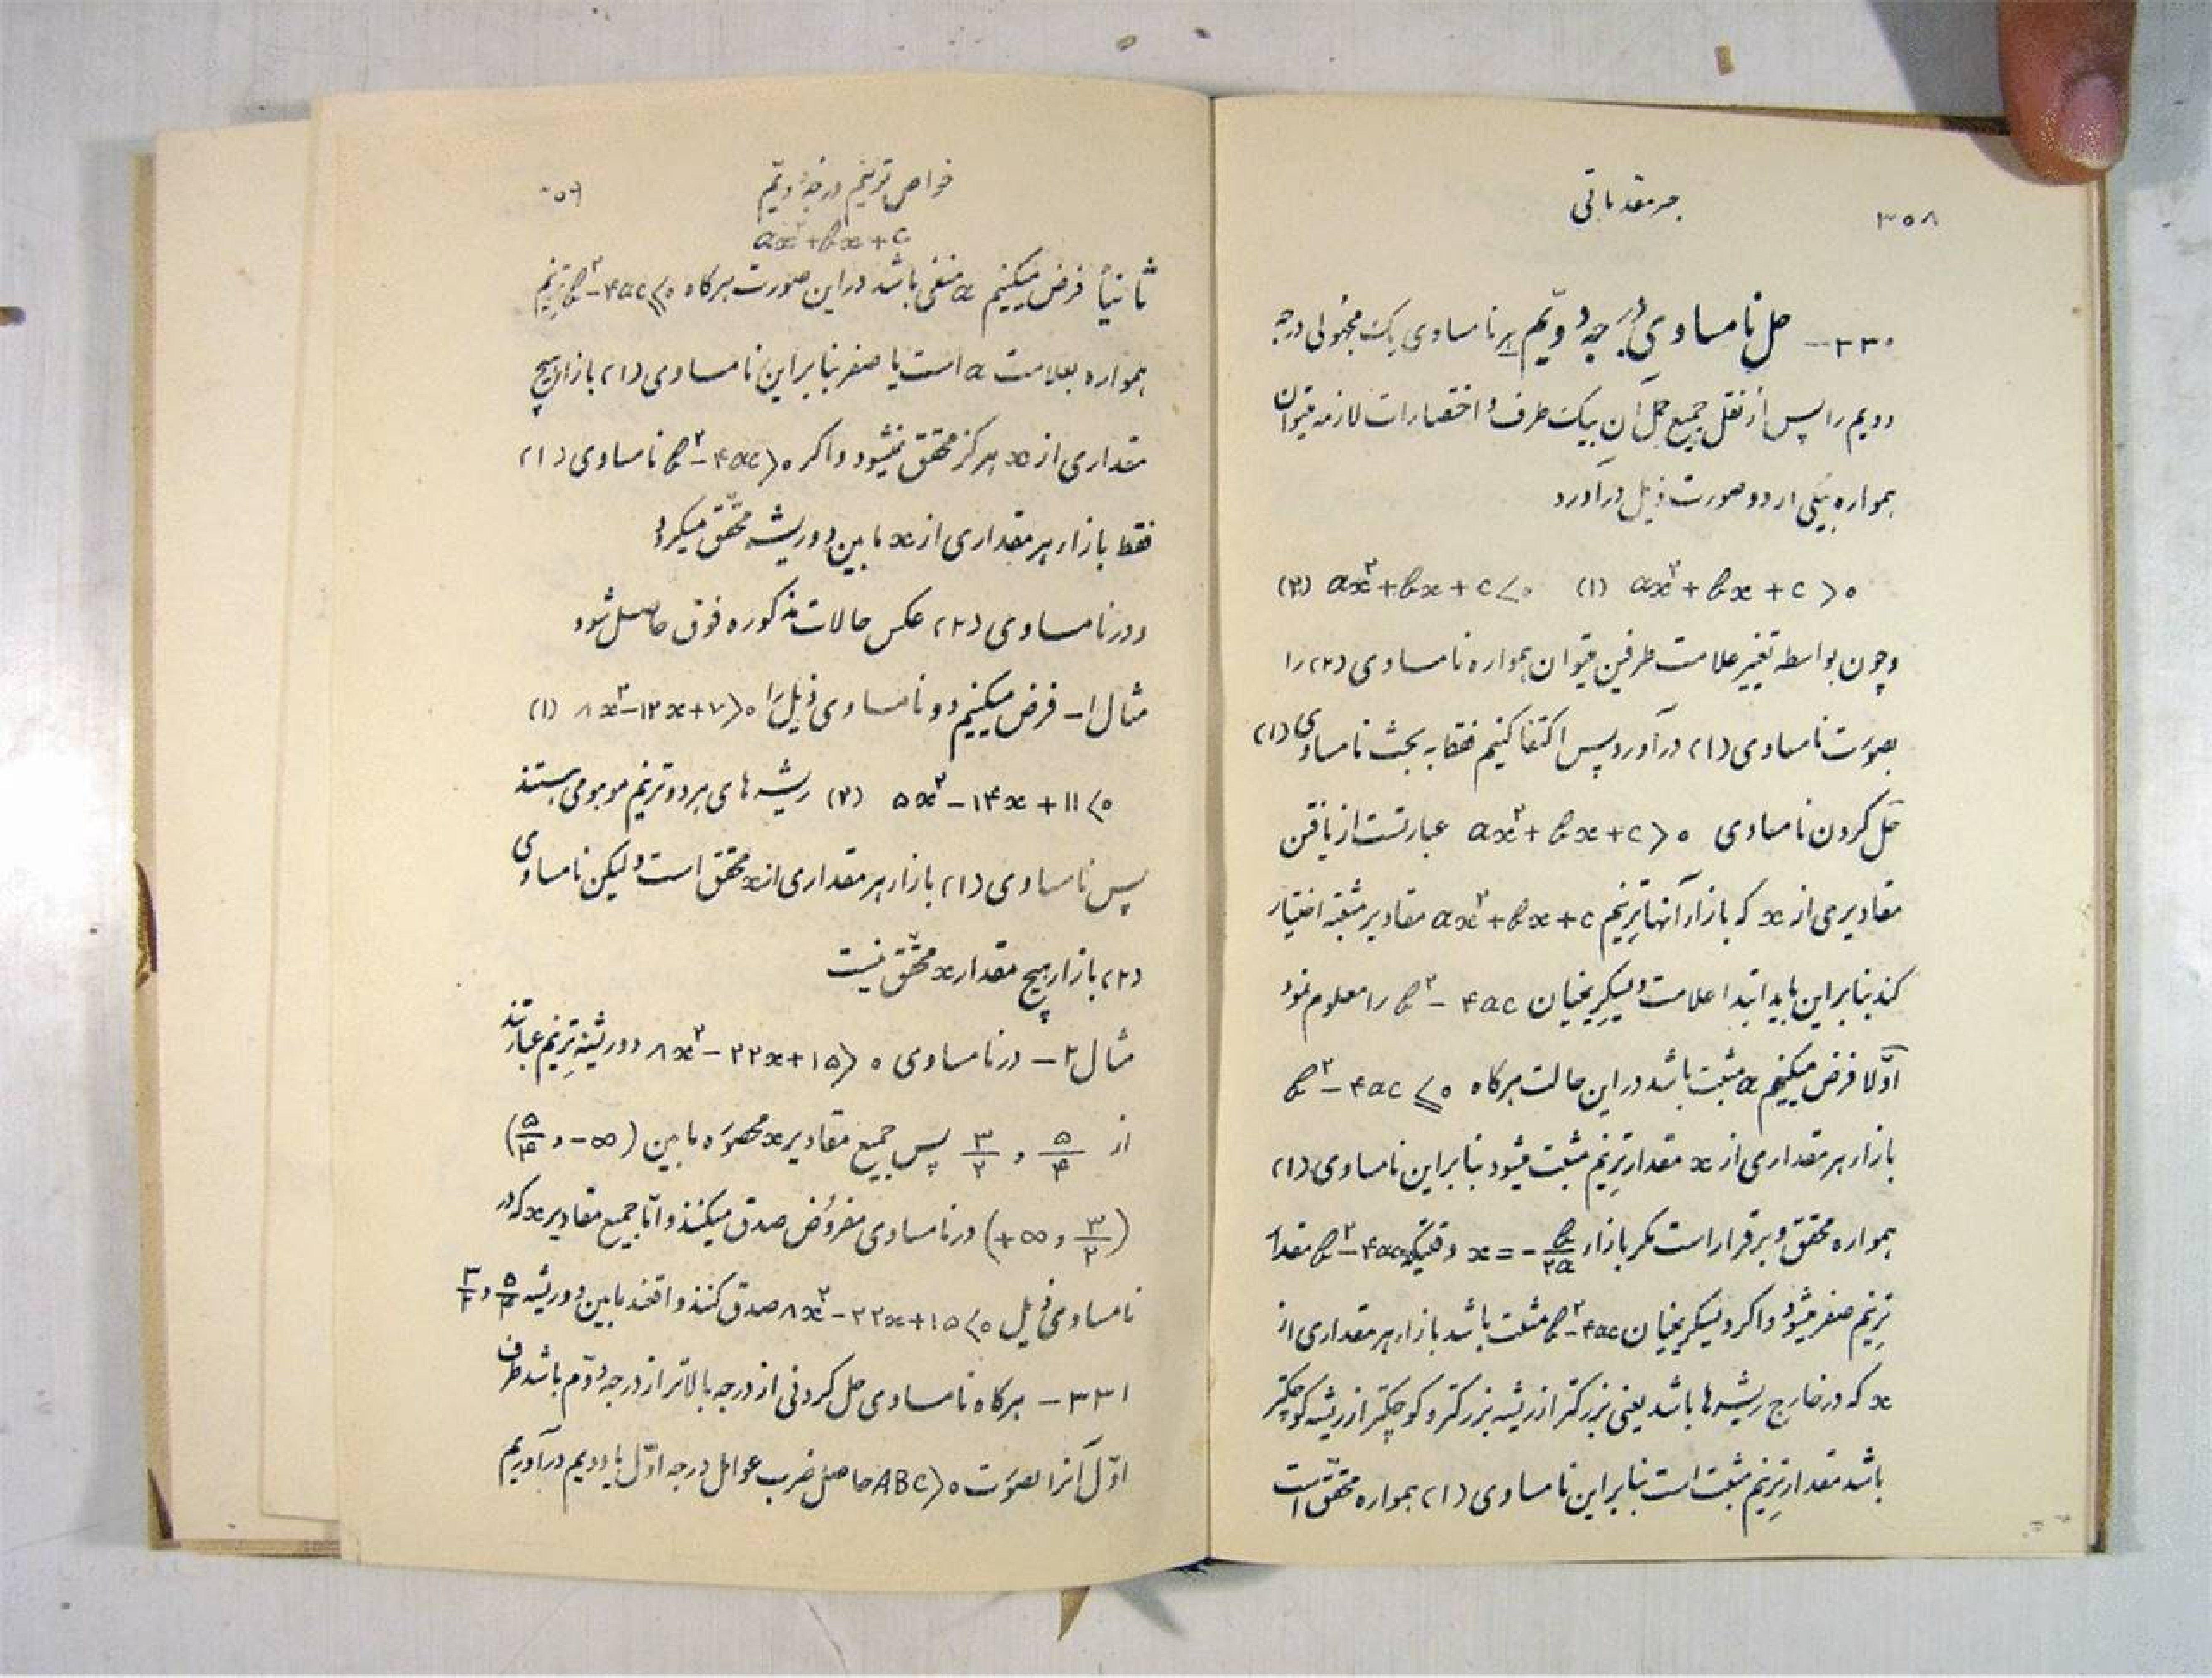 ۳۵۸
جبر مقدماتی
۳۳۰ — حل نامساوی درجه دویم هر نامساوی یک مجهولی درجه
دویم را پس از نقل جمیع جمل آن بیک طرف و اختصارات لازمه میتوان
همواره بیکی از دو صورت ذیل درآورد
(۲) ax²+bx+c<۰ (۱) ax²+bx+c>۰
و چون بواسطه تغییر علامت طرفین میتوان همواره نامساوی (۲) را
بصورت نامساوی (۱) درآورد پس اکتفا کنیم فقط به بحث نامساوی (۱)
حل کردن نامساوی ax²+bx+c>۰ عبارتست از یافتن
مقادیری از x که بازاء آنها ترینم ax²+bx+c مقادیر مثبته اختیار
کند بنابراین باید ابتدا علامت دیسکریمینان b²-۴ac را معلوم نمود
اولا فرض میکنیم a مثبت باشد در این حالت هرگاه b²-۴ac ≤ ۰
بازاء هر مقداری از x مقدار ترینم مثبت میشود بنابراین نامساوی (۱)
همواره محقق و برقرار است مگر بازاء x=-b/۲a وقتیکه b²-۴ac مقدار
ترینم صفر میشود و اگر دیسکریمینان b²-۴ac مثبت باشد بازاء هر مقداری از
x که در خارج ریشه‌ها باشد یعنی بزرگتر از ریشه بزرگتر و کوچکتر از ریشه کوچکتر
باشد مقدار ترینم مثبت است بنابراین نامساوی (۱) همواره محقق است
خواص ترینم درجه دویم
ax²+bx+c
ثانیاً فرض میکنیم a منفی باشد در این صورت هرگاه b²-۴ac≤۰ ترینم
همواره بعلامت a است یا صفر بنابراین نامساوی (۱) بازاء هیچ
مقداری از x هرگز محقق نمیشود و اگر b²-۴ac>۰ نامساوی (۱)
فقط بازاء هر مقداری از x مابین دو ریشه محقق میگردد
و در نامساوی (۲) عکس حالات مذکوره فوق حاصل شود
مثال ۱ — فرض میکنیم دو نامساوی ذیل را ۸x²-۱۲x+۷>۰ (۱)
۵x²-۱۴x+۱۱<۰ (۲) ریشه‌های هر دو ترینم موهومی هستند
پس نامساوی (۱) بازاء هر مقداری از x محقق است ولیکن نامساوی
(۲) بازاء هیچ مقدار x محقق نیست
مثال ۲ — در نامساوی ۸x²-۲۲x+۱۵>۰ دو ریشه ترینم عبارتند
از ۵/۴ و ۳/۲ پس جمیع مقادیر x محصوره مابین (۵/۴ و -∞)
(+∞ و ۳/۲) در نامساوی مفروض صدق میکنند و اما جمیع مقادیر x که در
نامساوی ذیل ۸x²-۲۲x+۱۵<۰ صدق کنند واقعند مابین دو ریشه ۵/۴ و ۳/۲
۳۳۱ — هرگاه نامساوی حل کردنی از درجه بالاتر از درجه دوم باشد طرف
اول آنرا بصورت ABC>۰ حاصل ضرب عوامل درجه اول یا دویم درآوریم